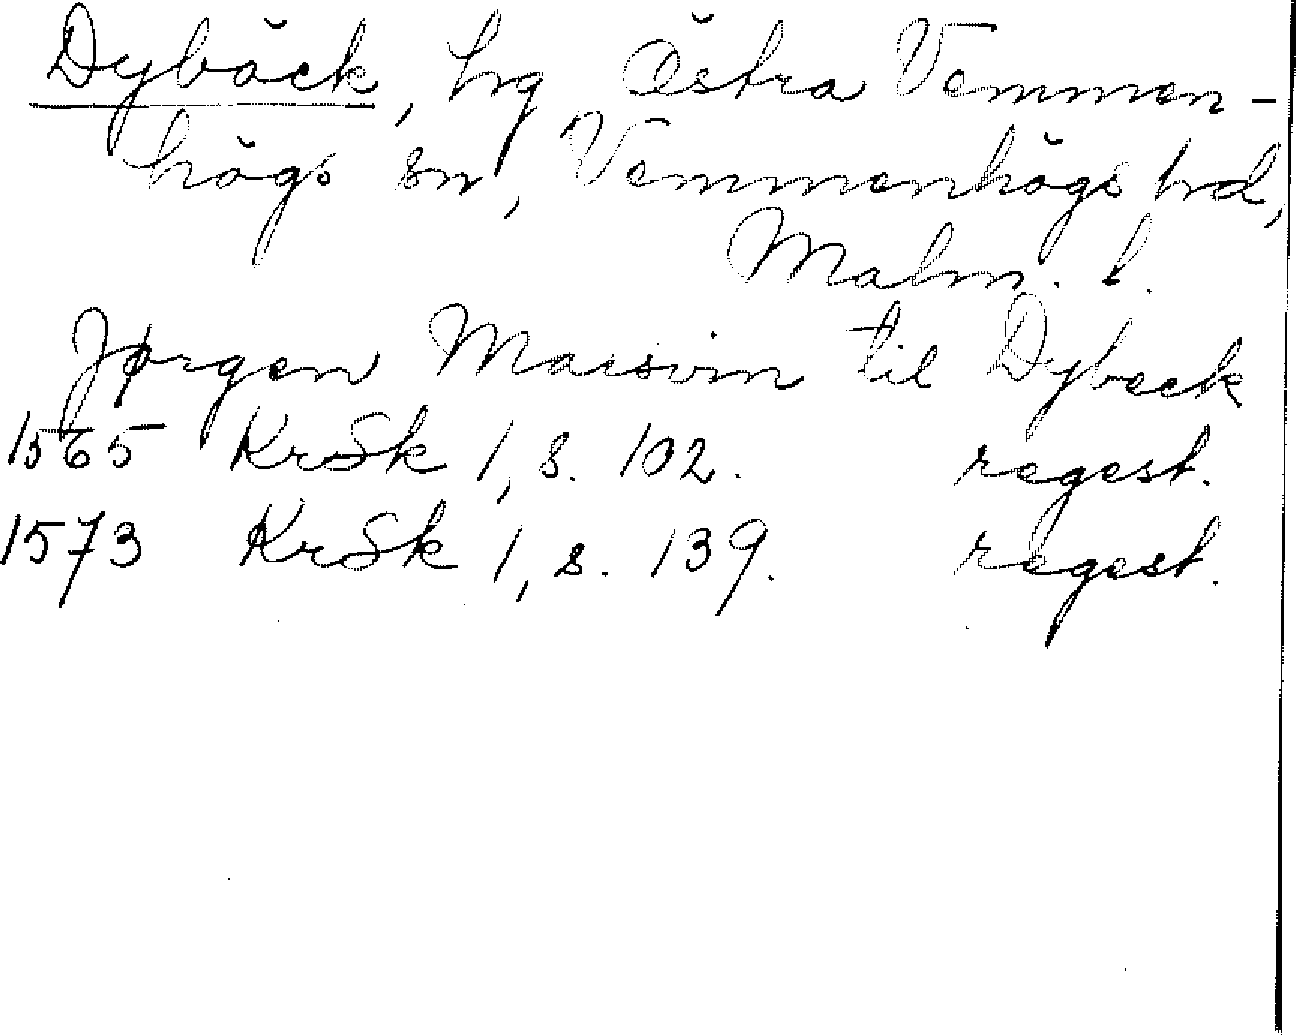 Dybäck, hg, Östra Vemmen-
högs sn, Vemmenhögs hd,
Malm. l.
Jørgen Marsvin til Dybeck
1565 KrSk 1, s. 102. regest.
1573 KrSk 1, s. 139. regest.